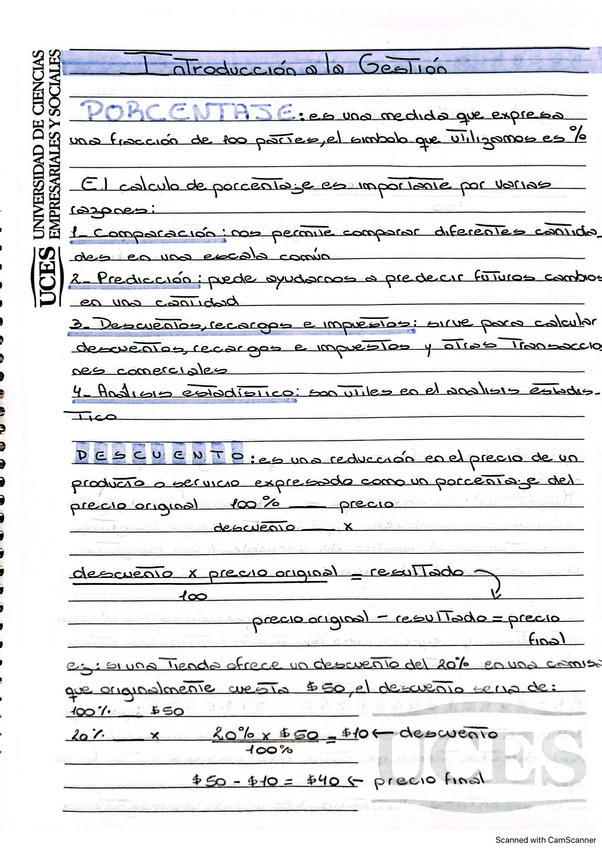 UCES UNIVERSIDAD DE CIENCIAS
EMPRESARIALES Y SOCIALES
Introducción a la Gestión
PORCENTAJE: es una medida que expresa
una fracción de 100 partes, el simbolo que utilizamos es %
El calculo de porcentaje es importante por varias
razones:
1- Comparación: nos permite comparar diferentes cantida-
des en una escala común
2- Predicción: puede ayudarnos a predecir futuros cambios
en una cantidad
3- Descuentos, recargos e impuestos: sirve para calcular
descuentos, recargos e impuestos y otras transaccio
nes comerciales
4- Análisis estadístico: son utiles en el analisis estadis-
tico
DESCUENTO: es una reducción en el precio de un
producto o servicio expresado como un porcentaje del
precio original 100% ___ precio
descuento ___ x
descuento x precio original = resultado
100
precio original - resultado = precio
final
ej: si una tienda ofrece un descuento del 20% en una camisa
que originalmente cuesta $50, el descuento seria de:
100% __: $50
20% ___ x 20% x $50 = $10 ← descuento
100%
$50 - $10 = $40 ← precio final
UCES
Scanned with CamScanner